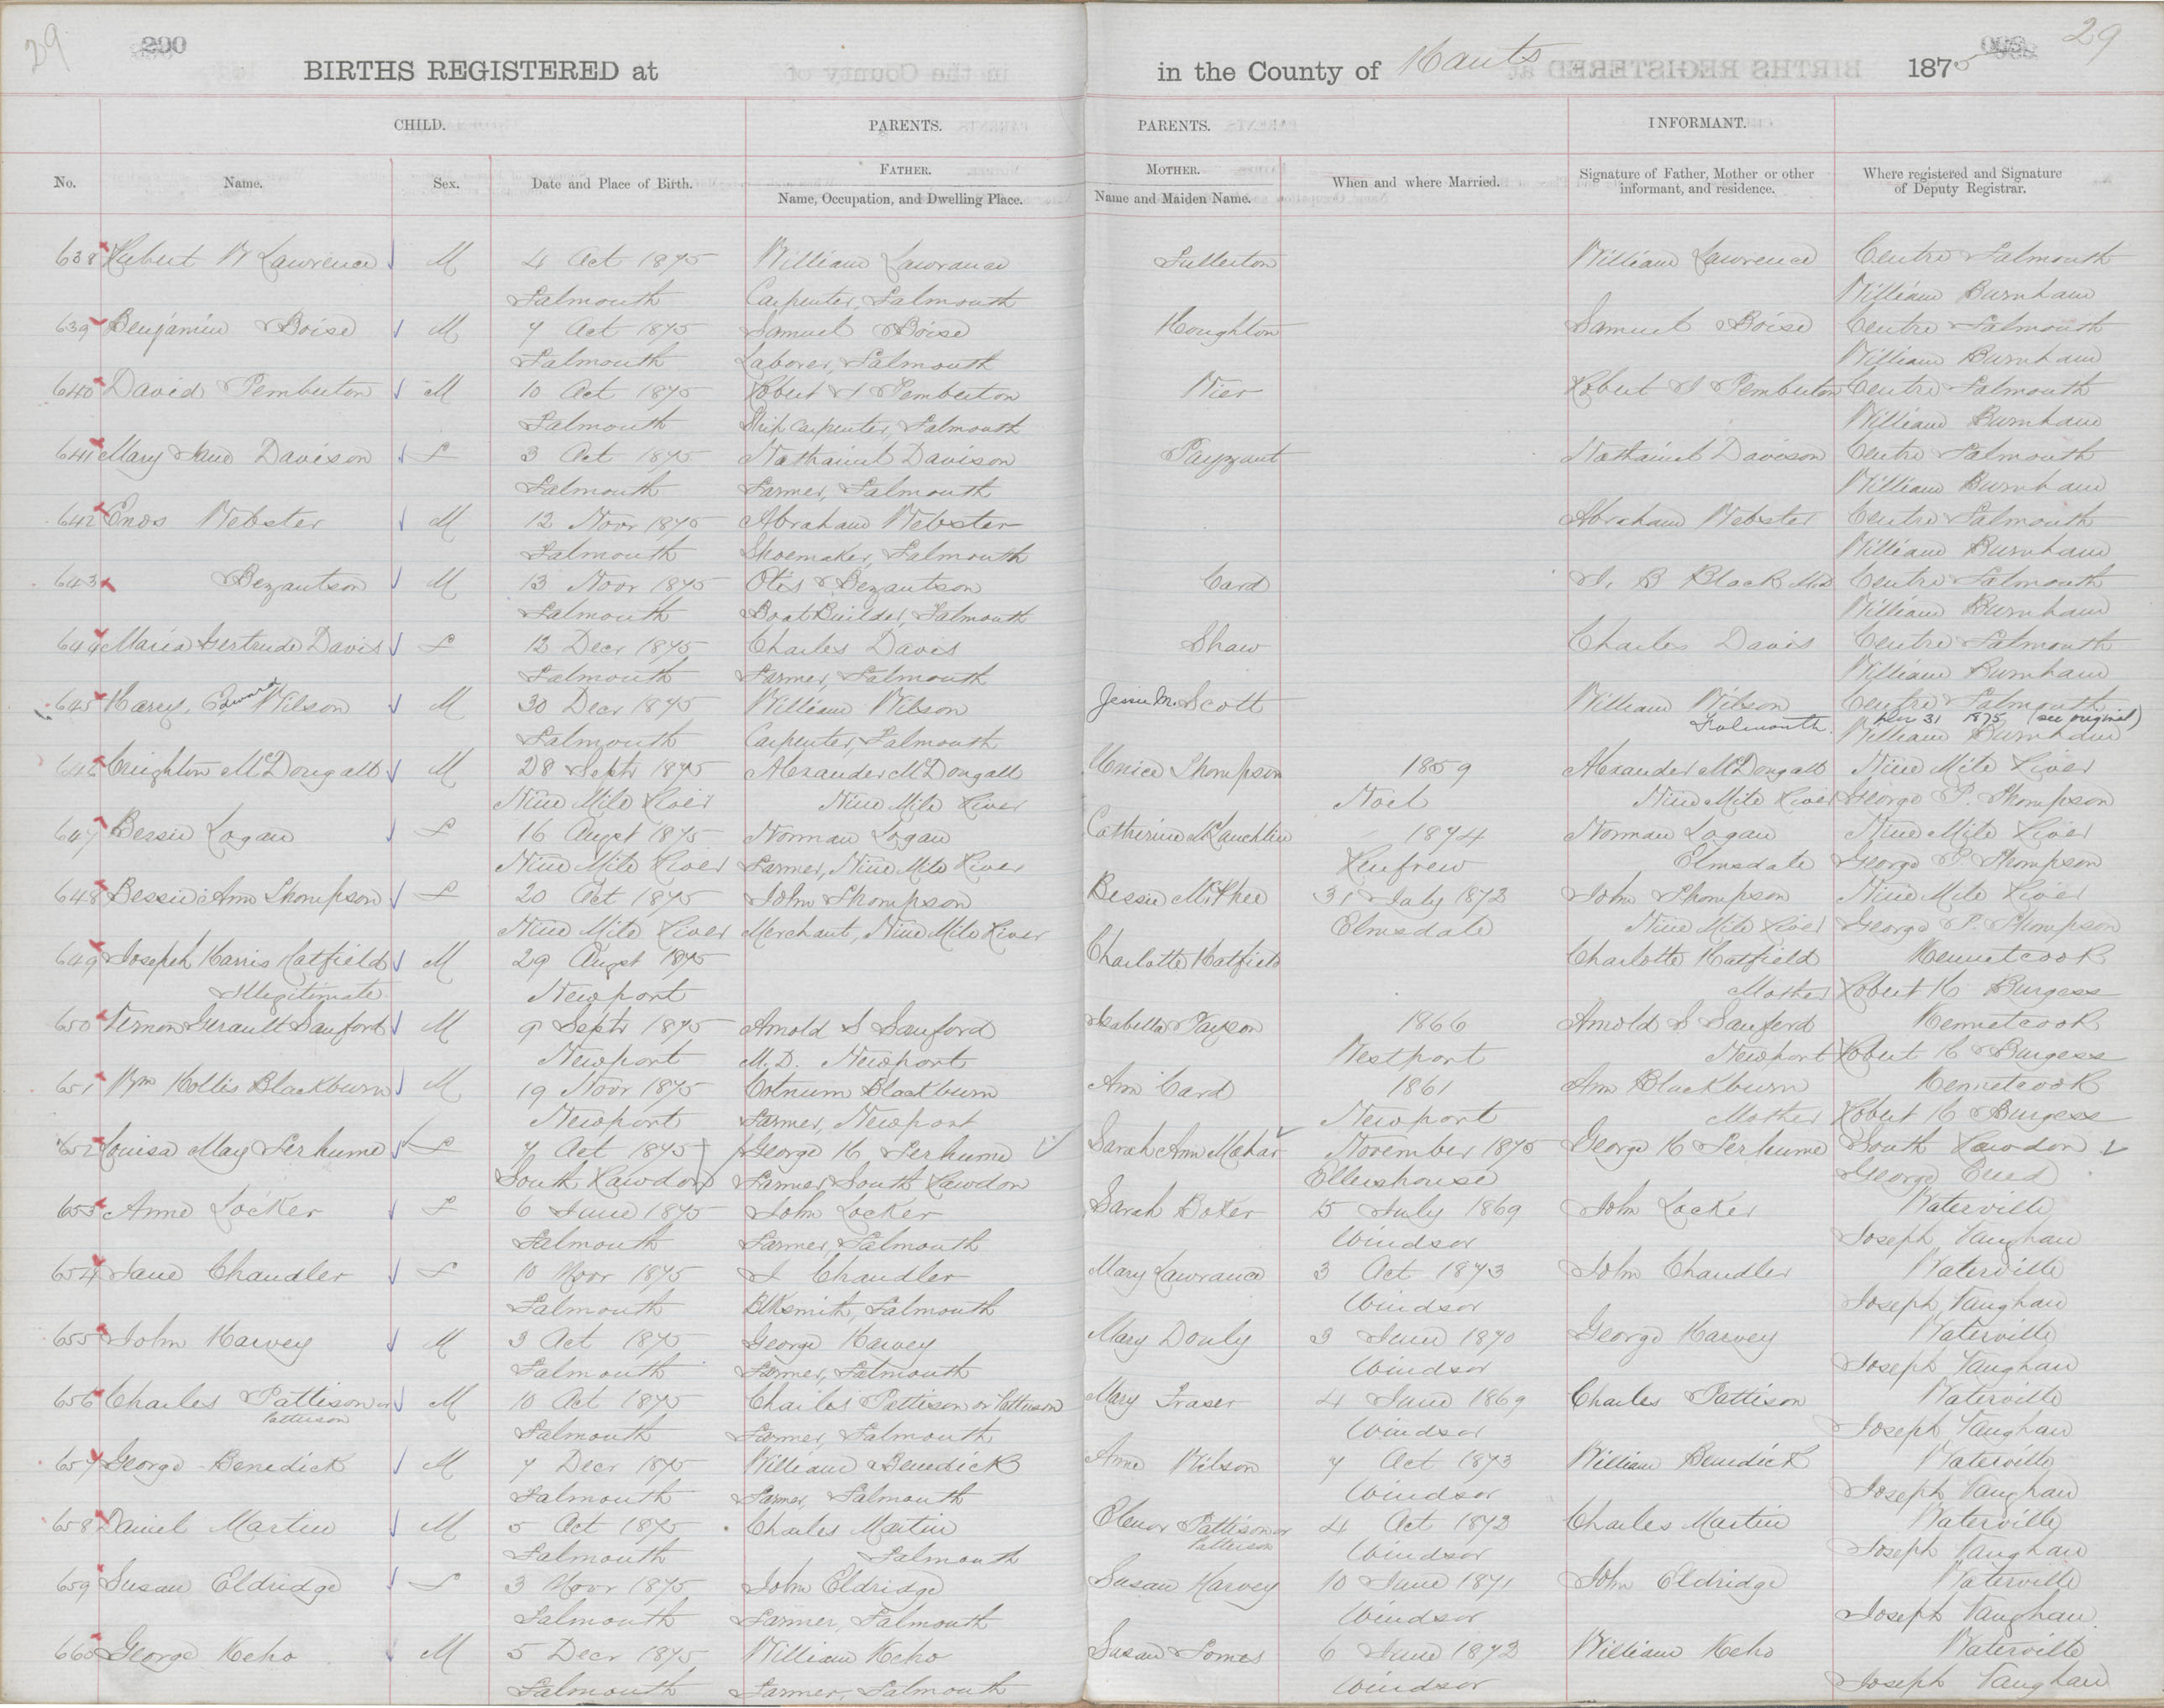 29 290 29
BIRTHS REGISTERED at in the County of Hants 1875
CHILD. PARENTS. PARENTS. INFORMANT.
No. Name. Sex. Date and Place of Birth. FATHER. Name, Occupation, and Dwelling Place. MOTHER. Name and Maiden Name. When and where Married. Signature of Father, Mother or other informant, and residence. Where registered and Signature of Deputy Registrar.
638 Hubert W Lawrence M 4 Oct 1875 William Lawrance Fullerton William Lawrence Centre Falmouth
Falmouth Carpenter, Falmouth William Burnham
639 Benjamin Boise M 7 Oct 1875 Samuel Boise Houghton Samuel Boise Centre Falmouth
Falmouth Laborer, Falmouth William Burnham
640 David Pemberton M 10 Oct 1875 Robert S Pemberton Wier Robert S Pemberton Centre Falmouth
Falmouth Ship Carpenter, Falmouth William Burnham
641 Mary Jane Davison F 3 Oct 1875 Nathaniel Davison Payzant Nathaniel Davison Centre Falmouth
Falmouth Farmer, Falmouth William Burnham
642 Enos Webster M 12 Novr 1875 Abraham Webster Abraham Webster Centre Falmouth
Falmouth Shoemaker, Falmouth William Burnham
643 Bezantson M 13 Novr 1875 Otis Bezantson Card J. B Black M.D Centre Falmouth
Falmouth Boat Builder, Falmouth William Burnham
644 Maria Gertrude Davis F 12 Decr 1875 Charles Davis Shaw Charles Davis Centre Falmouth
Falmouth Farmer, Falmouth William Burnham
645 Harry, Edward Wilson M 30 Decr 1875 William Wilson Jessie M. Scott William Wilson Centre Falmouth
Falmouth. Dec 31 1875 (see original)
Falmouth Carpenter, Falmouth William Burnham
646 Creighton McDougall M 28 Septr 1875 Alexander McDougall Unice Thompson 1859 Alexander McDougall Nine Mile River
Nine Mile River Nine Mile River Noel Nine Mile River George P. Thompson
647 Bessie Logan F 16 Augst 1875 Norman Logan Catherine McLauchlin 1874 Norman Logan Nine Mile River
Nine Mile River Farmer, Nine Mile River Renfrew Elmsdale George P. Thompson
648 Bessie Ann Thompson F 20 Oct 1875 John Thompson Bessie McPhee 31 July 1872 John Thompson Nine Mile River
Nine Mile River Merchant, Nine Mile River Elmsdale Nine Mile River George P. Thompson
649 Joseph Harris Hatfield M 29 Augst 1875 Charlotte Hatfield Charlotte Hatfield Kennetcook
Illegitimate Newport Mother Robert H Burgess
650 Vernon Gerault Sanford M 9 Septr 1875 Arnold S Sanford Isabella Payson 1866 Arnold S Sanford Kennetcook
Newport M.D. Newport Westport Newport Robert H Burgess
651 Wm Hollis Blackburn M 19 Novr 1875 Colnum Blackburn Ann Card 1861 Ann Blackburn Kennetcook
Newport Farmer, Newport Newport Mother Robert H Burgess
652 Louisa May Serhume F 7 Oct 1875 George H Serhume Sarah Ann Mahar November 1875 George H Serhume South Rawdon
South Rawdon Farmer, South Rawdon Ellershouse George Creed
653 Anne Locker F 6 June 1875 John Locker Sarah Boxer 15 July 1869 John Locker Waterville
Falmouth Farmer, Falmouth Windsor Joseph Vaughan
654 Jane Chandler F 10 Novr 1875 J Chandler Mary Lawrance 3 Oct 1873 John Chandler Waterville
Falmouth Blksmith, Falmouth Windsor Joseph Vaughan
655 John Harvey M 3 Oct 1875 George Harvey Mary Douly 3 June 1870 George Harvey Waterville
Falmouth Farmer, Falmouth Windsor Joseph Vaughan
656 Charles Pattison or Patterson M 10 Oct 1875 Charles Pattison or Patterson Mary Fraser 4 June 1869 Charles Pattison Waterville
Falmouth Farmer, Falmouth Windsor Joseph Vaughan
657 George Benedick M 7 Decr 1875 William Benedick Anne Wilson 7 Oct 1873 William Benedick Waterville
Falmouth Farmer, Falmouth Windsor Joseph Vaughan
658 Daniel Martin M 5 Oct 1875 Charles Martin Elenor Pattison or Patterson 4 Oct 1872 Charles Martin Waterville
Falmouth Falmouth Windsor Joseph Vaughan
659 Susan Eldridge F 3 Novr 1875 John Eldridge Susan Harvey 10 June 1871 John Eldridge Waterville
Falmouth Farmer, Falmouth Windsor Joseph Vaughan
660 George Keho M 5 Decr 1875 William Keho Susan Lomes 6 June 1872 William Keho Waterville
Falmouth Farmer, Falmouth Windsor Joseph Vaughan